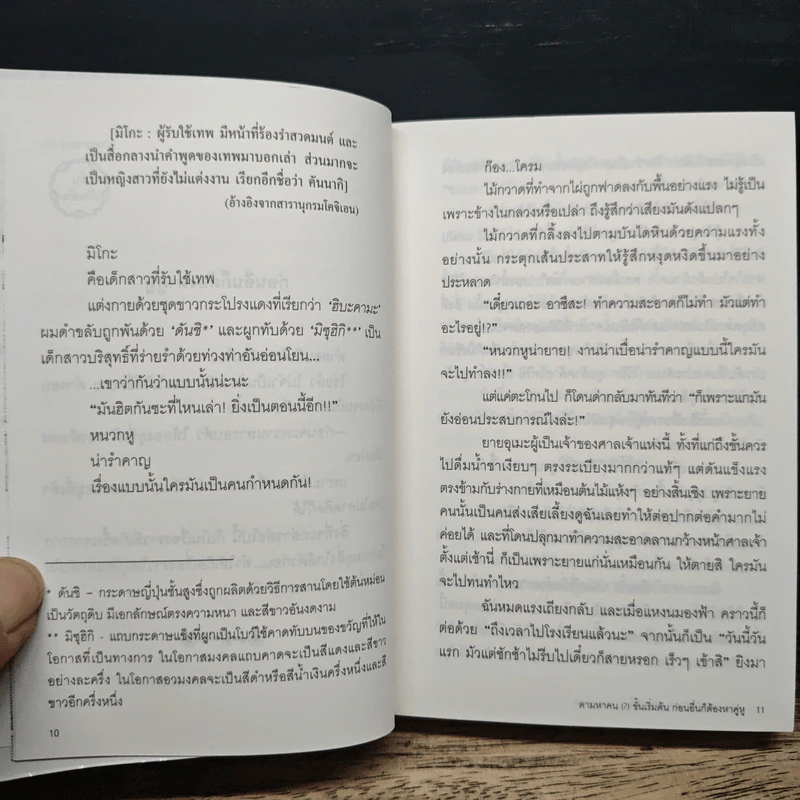 [มิโกะ : ผู้รับใช้เทพ มีหน้าที่ร้องรำสวดมนต์ และ
เป็นสื่อกลางนำคำพูดของเทพมาบอกเล่า ส่วนมากจะ
เป็นหญิงสาวที่ยังไม่แต่งงาน เรียกอีกชื่อว่า คันนากิ]
(อ้างอิงจากสารานุกรมโคจิเอน)
มิโกะ
คือเด็กสาวที่รับใช้เทพ
แต่งกายด้วยชุดขาวกระโปรงแดงที่เรียกว่า ‘ฮิบะคามะ’
ผมดำขลับถูกพันด้วย ‘ดันชิ*’ และผูกทับด้วย ‘มิซุฮิกิ**’ เป็น
เด็กสาวบริสุทธิ์ที่ร่ายรำด้วยท่วงท่าอันอ่อนโยน...
...เขาว่ากันว่าแบบนั้นน่ะนะ
“มันฮิตกันซะที่ไหนเล่า! ยิ่งเป็นตอนนี้อีก!!”
หนวกหู
น่ารำคาญ
เรื่องแบบนั้นใครมันเป็นคนกำหนดกัน!
* ดันชิ – กระดาษญี่ปุ่นชั้นสูงซึ่งถูกผลิตด้วยวิธีการสานโดยใช้ต้นหม่อน
เป็นวัตถุดิบ มีเอกลักษณ์ตรงความหนา และสีขาวอันงดงาม
** มิซุฮิกิ - แถบกระดาษแข็งที่ผูกเป็นโบว์ใช้คาดทับบนของขวัญที่ให้ใน
โอกาสที่เป็นทางการ ในโอกาสมงคลแถบคาดจะเป็นสีแดงและสีขาว
อย่างละครึ่ง ในโอกาสอวมงคลจะเป็นสีดำหรือสีน้ำเงินครึ่งหนึ่งและสี
ขาวอีกครึ่งหนึ่ง
10
ก๊อง...โครม
ไม้กวาดที่ทำจากไผ่ถูกฟาดลงกับพื้นอย่างแรง ไม่รู้เป็น
เพราะข้างในกลวงหรือเปล่า ถึงรู้สึกว่าเสียงมันดังแปลกๆ
ไม้กวาดที่กลิ้งลงไปตามบันไดหินด้วยความแรงทั้ง
อย่างนั้น กระตุกเส้นประสาทให้รู้สึกหงุดหงิดขึ้นมาอย่าง
ประหลาด
“เดี๋ยวเถอะ อาซึสะ! ทำความสะอาดก็ไม่ทำ มัวแต่ทำ
อะไรอยู่!?”
“หนวกหูน่ายาย! งานน่าเบื่อน่ารำคาญแบบนี้ใครมัน
จะไปทำลง!!”
แต่แค่ตะโกนไป ก็โดนด่ากลับมาทันทีว่า “ก็เพราะแกมัน
ยังอ่อนประสบการณ์ไงล่ะ!”
ยายอุเมะผู้เป็นเจ้าของศาลเจ้าแห่งนี้ ทั้งที่แก่ถึงขั้นควร
ไปดื่มน้ำชาเงียบๆ ตรงระเบียงมากกว่าแท้ๆ แต่ดันแข็งแรง
ตรงข้ามกับร่างกายที่เหมือนต้นไม้แห้งๆ อย่างสิ้นเชิง เพราะยาย
คนนั้นเป็นคนส่งเสียเลี้ยงดูฉันเลยทำให้ต่อปากต่อคำมากไม่
ค่อยได้ และที่โดนปลุกมาทำความสะอาดลานกว้างหน้าศาลเจ้า
ตั้งแต่เช้านี่ ก็เป็นเพราะยายแก่นั่นเหมือนกัน ให้ตายสิ ใครมัน
จะไปทนทำไหว
ฉันหมดแรงเถียงกลับ และเมื่อแหงนมองฟ้า คราวนี้ก็
ต่อด้วย “ถึงเวลาไปโรงเรียนแล้วนะ” จากนั้นก็เป็น “วันนี้วัน
แรก มัวแต่ชักช้าไม่รีบไปเดี๋ยวก็สายหรอก เร็วๆ เข้าสิ” ยิงมา
ตามหาคน (?) ขั้นเริ่มต้น ก่อนอื่นก็ต้องหาคู่หู 11